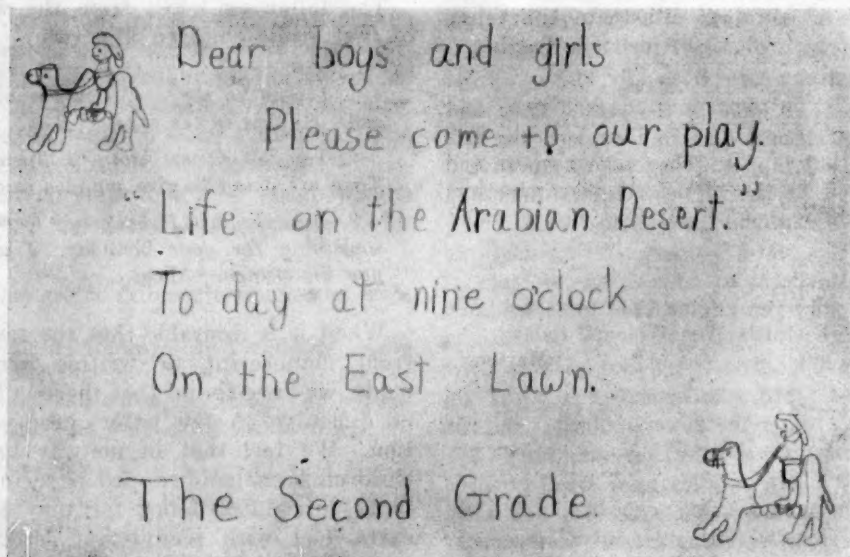 Dear boys and girls
Please come to our play.
"Life on the Arabian Desert."
To day at nine o'clock
On the East Lawn.
The Second Grade.